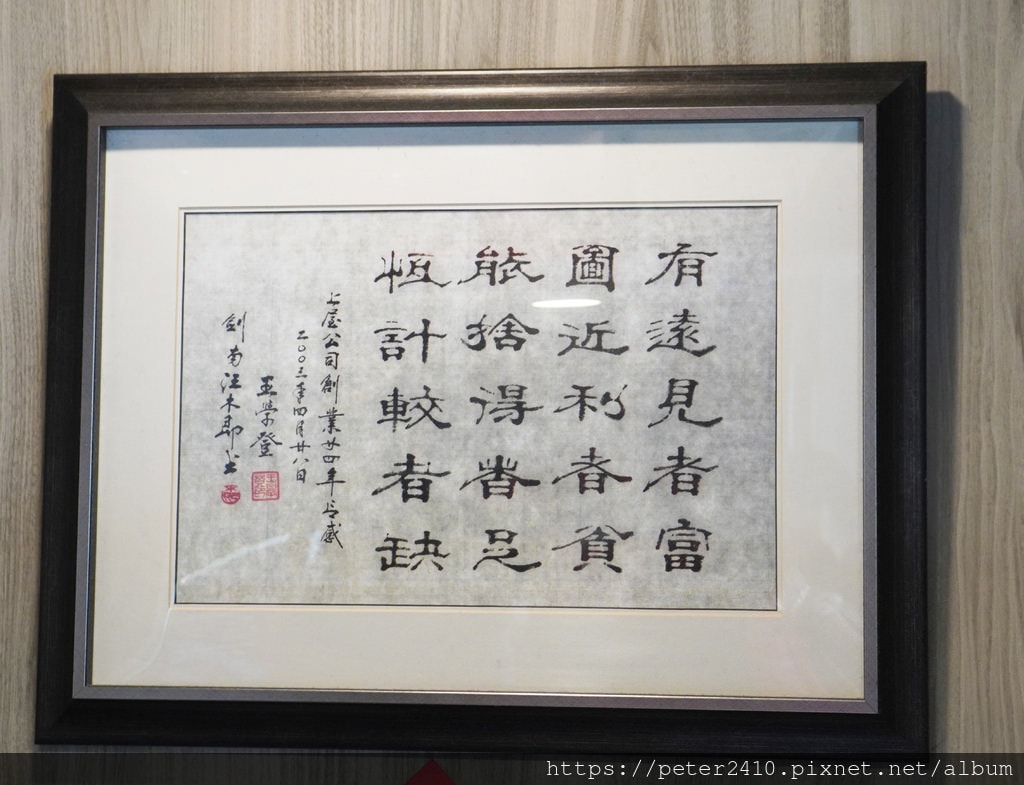 有遠見者富
圖近利者貧
能捨得者足
恆計較者缺
上屋公司創業廿四年有感
二〇〇三年四月廿八日
王學登
劍南汪木郎書
https://peter2410.pixnet.net/album